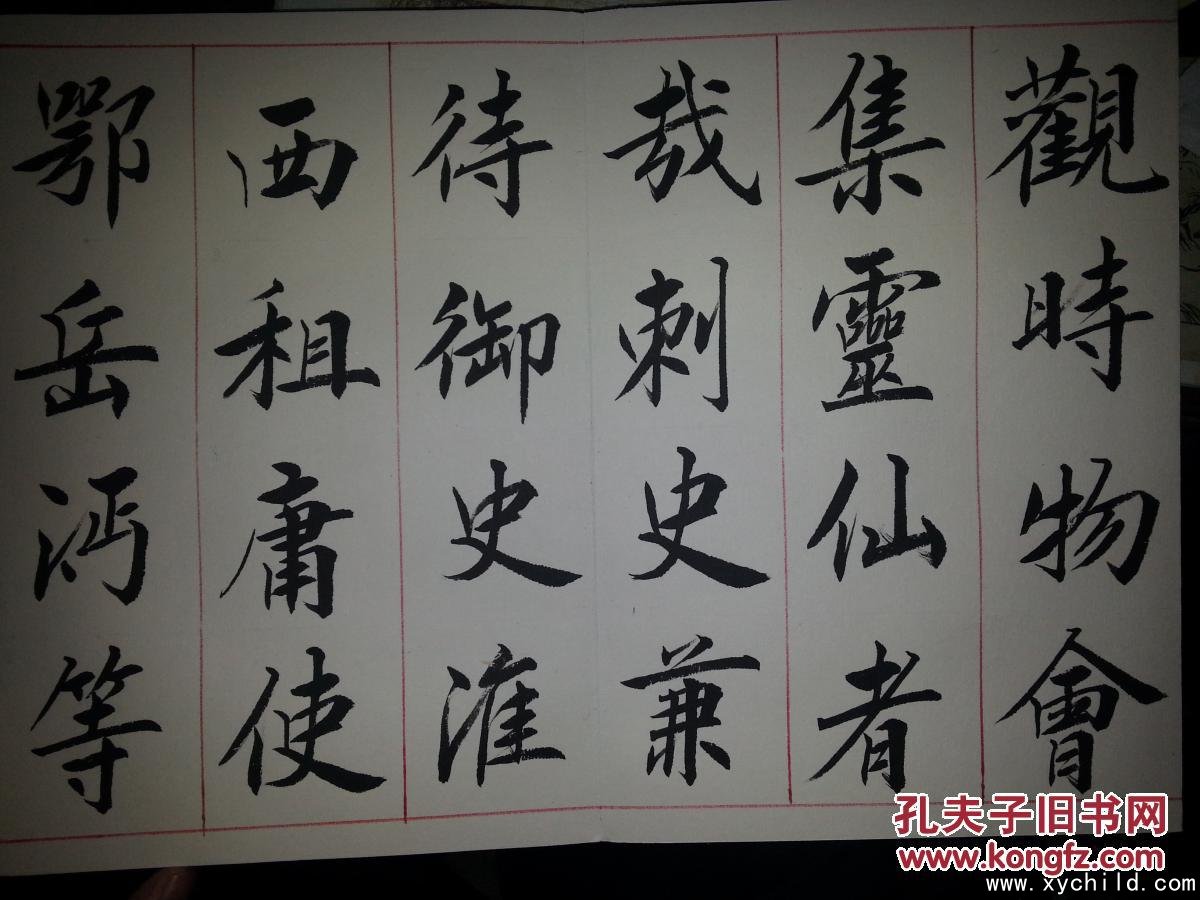 觀時物會
集靈仙者
哉刺史兼
侍御史淮
西租庸使
鄂岳沔等
孔夫子旧书网
www.kongfz.com
www.xychild.com